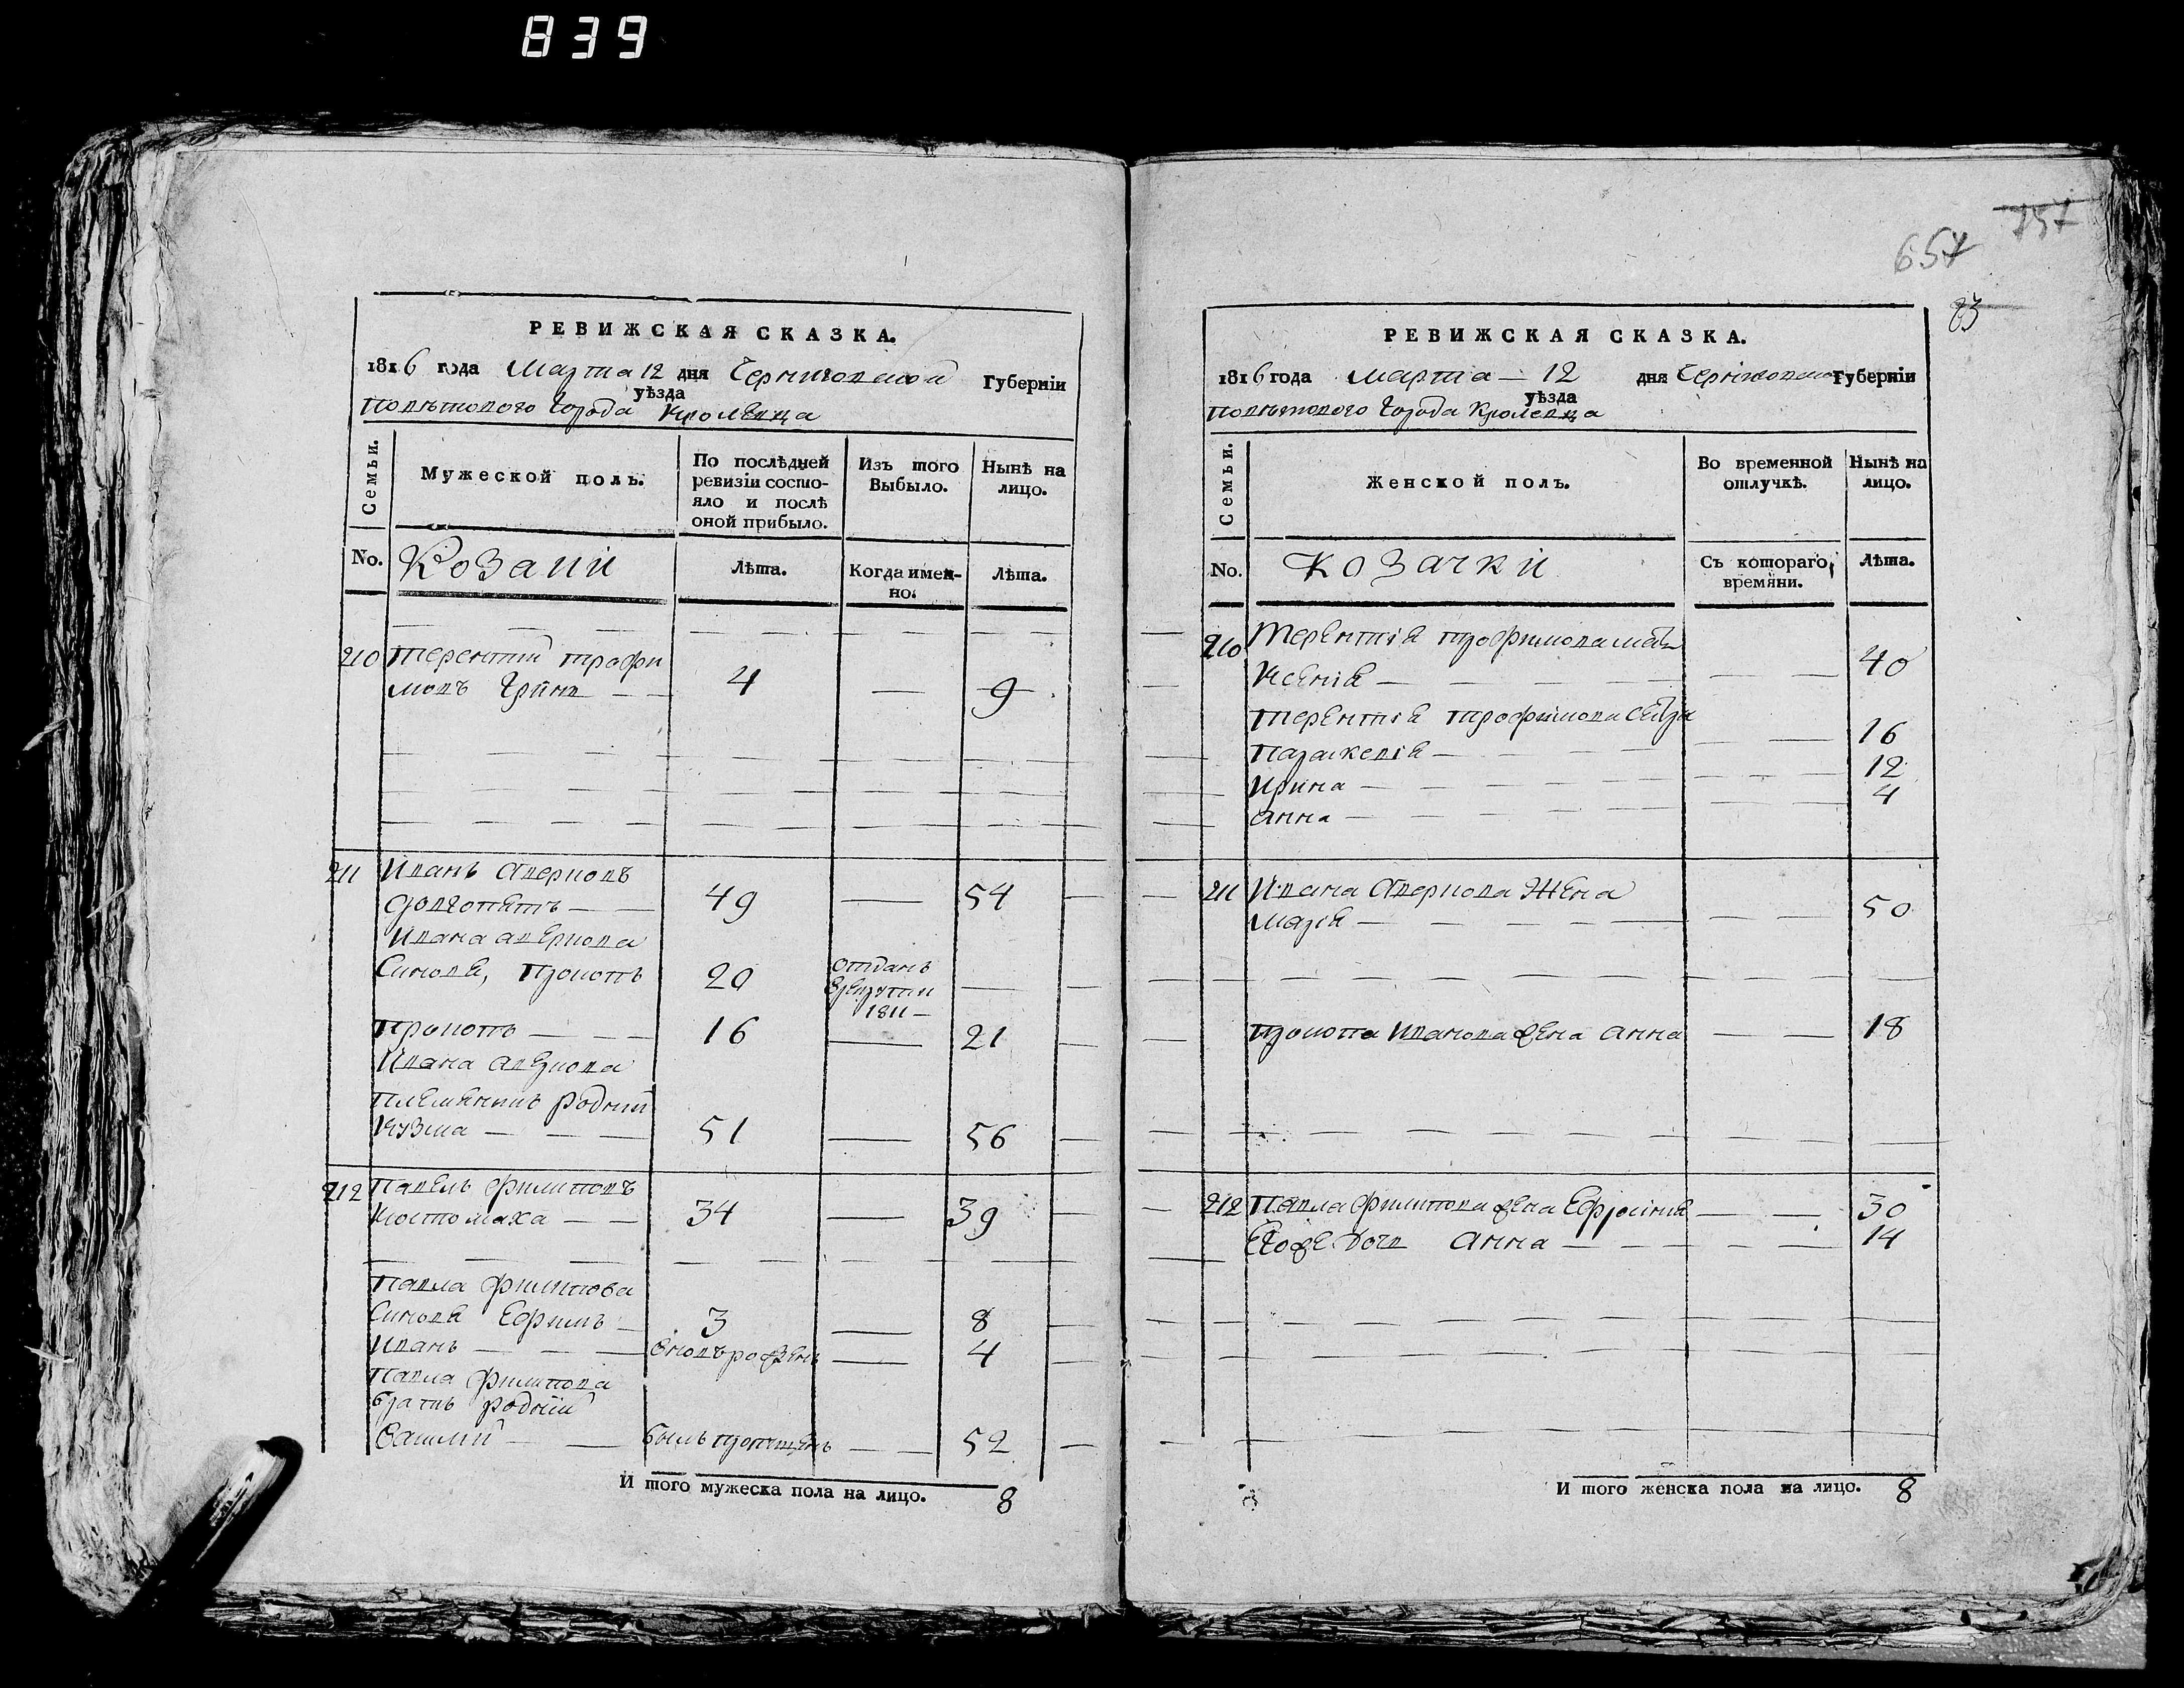 839
657
757
83
РЕВИЖСКАЯ СКАЗКА.
1816 года Марта 12 дня Черниговской Губерніи
уѣзда
Повѣтового Города Кролевца
Семьи.
Мужеской полъ.
По послѣдней ревизіи состо-
яло и послѣ
оной прибыло.
Изъ того
Выбыло.
Нынѣ на
лицо.
No.
Козаки
Лѣта.
Когда имен-
но.
Лѣта.
210 Терентий Трофи
мовъ 4 9
211 Иванъ Аверковъ
Долгопятъ 49 54
Ивана Аверкова
Синовя, Прокопъ 20 отданъ
в рекруты
1811
Прокопъ 16 21
Ивана Аверкова
племенникъ родний
Кузма 51 56
212 Павелъ Филиповъ
Костомаха 34 39
Павла Филипова
Синовя Ефимъ 3 8
Иванъ вновъ рожденъ 4
Павла Филипова
братъ родний
Василий былъ пропущенъ 52
И того мужеска пола на лицо. 8
РЕВИЖСКАЯ СКАЗКА.
1816 года Марта 12 дня Черниговской Губерніи
уѣзда
Повѣтового Города Кролевца
Семьи.
Женской полъ.
Во временной
отлучкѣ.
Нынѣ на
лицо.
No.
Козачки
Съ котораго
времяни.
Лѣта.
210 Терентия Трофимова мать
Ксения 40
Терентия Трофимова сестри
Параскевия 16
Ирина 12
Анна 4
211 Ивана Аверкова жена
Мария 50
Прокопа Иванова жена Анна 18
212 Павла Филипова жена Ефросиния 30
Его же дочь Анна 14
И того женска пола на лицо. 8